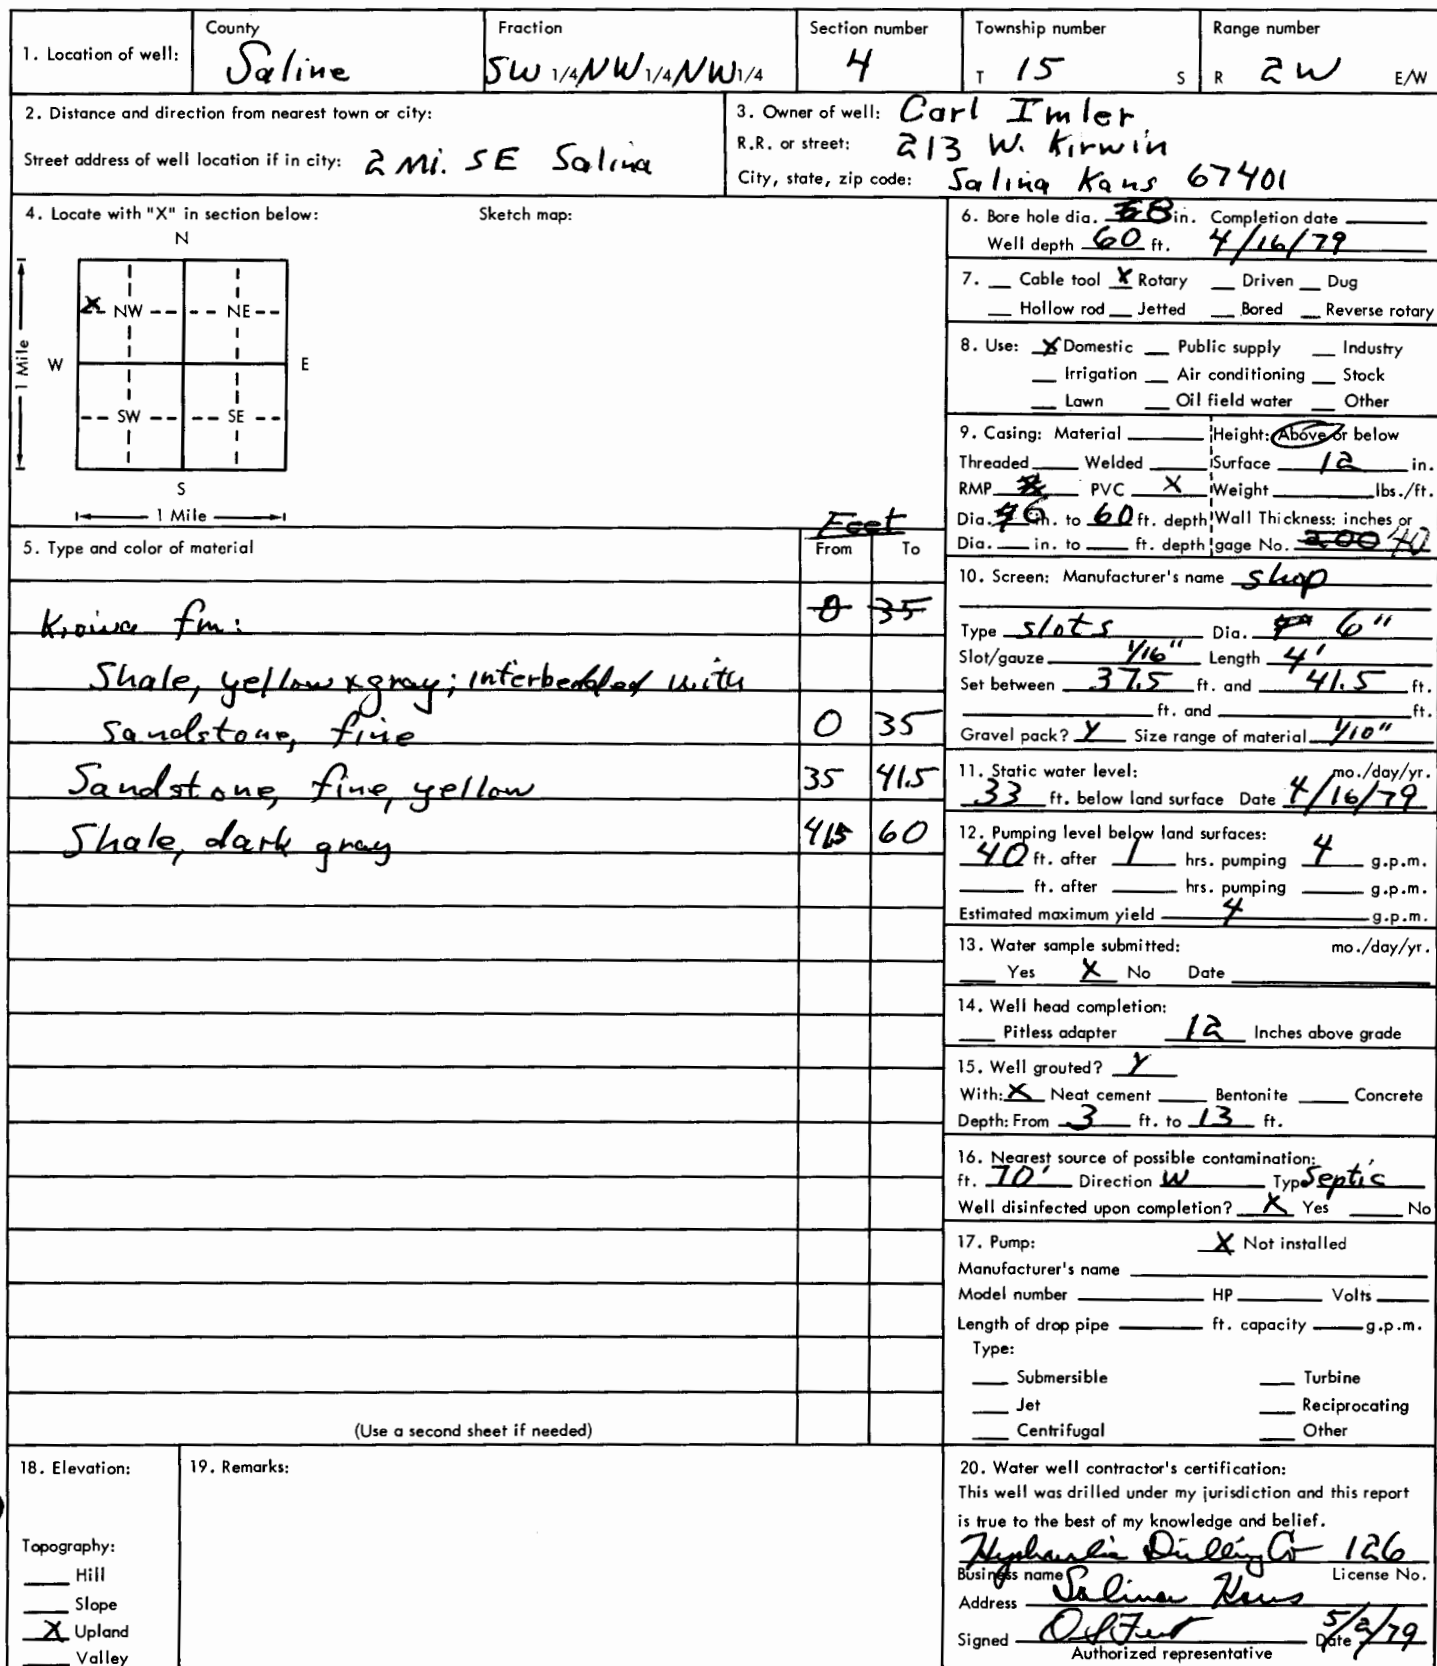 1. Location of well:
County
Saline
Fraction
SW 1/4 NW 1/4 NW 1/4
Section number
4
Township number
T 15 S
Range number
R 2W E/W
2. Distance and direction from nearest town or city:
Street address of well location if in city: 2 Mi. SE Salina
3. Owner of well: Carl Imler
R.R. or street: 213 W. Kirwin
City, state, zip code: Salina Kans 67401
4. Locate with "X" in section below:
Sketch map:
N
X NW NE
W E
SW SE
S
1 Mile
1 Mile
Feet
5. Type and color of material From To
Kiowa fm: 0 35
Shale, yellow & gray; interbedded with
sandstone, fine 0 35
Sandstone, fine, yellow 35 41.5
Shale, dark gray 41.5 60
(Use a second sheet if needed)
6. Bore hole dia. 8 in. Completion date
Well depth 60 ft. 4/16/79
7. Cable tool X Rotary Driven Dug
Hollow rod Jetted Bored Reverse rotary
8. Use: X Domestic Public supply Industry
Irrigation Air conditioning Stock
Lawn Oil field water Other
9. Casing: Material Height: Above or below
Threaded Welded Surface 12 in.
RMP PVC X Weight lbs./ft.
Dia. 6 in. to 60 ft. depth Wall Thickness: inches or
Dia. in. to ft. depth gage No. 200 40
10. Screen: Manufacturer's name shop
Type slots Dia. 6"
Slot/gauze 1/16" Length 4'
Set between 37.5 ft. and 41.5 ft.
ft. and ft.
Gravel pack? Y Size range of material 1/10"
11. Static water level: mo./day/yr.
33 ft. below land surface Date 4/16/79
12. Pumping level below land surfaces:
40 ft. after 1 hrs. pumping 4 g.p.m.
ft. after hrs. pumping g.p.m.
Estimated maximum yield 4 g.p.m.
13. Water sample submitted: mo./day/yr.
Yes X No Date
14. Well head completion:
Pitless adapter 12 Inches above grade
15. Well grouted? Y
With: X Neat cement Bentonite Concrete
Depth: From 3 ft. to 13 ft.
16. Nearest source of possible contamination:
ft. 70' Direction W Type Septic
Well disinfected upon completion? X Yes No
17. Pump: X Not installed
Manufacturer's name
Model number HP Volts
Length of drop pipe ft. capacity g.p.m.
Type:
Submersible Turbine
Jet Reciprocating
Centrifugal Other
18. Elevation:
Topography:
Hill
Slope
X Upland
Valley
19. Remarks:
20. Water well contractor's certification:
This well was drilled under my jurisdiction and this report
is true to the best of my knowledge and belief.
Hydraulic Drilling Co 126
Business name License No.
Address Salina Kans
Signed Date 5/2/79
Authorized representative